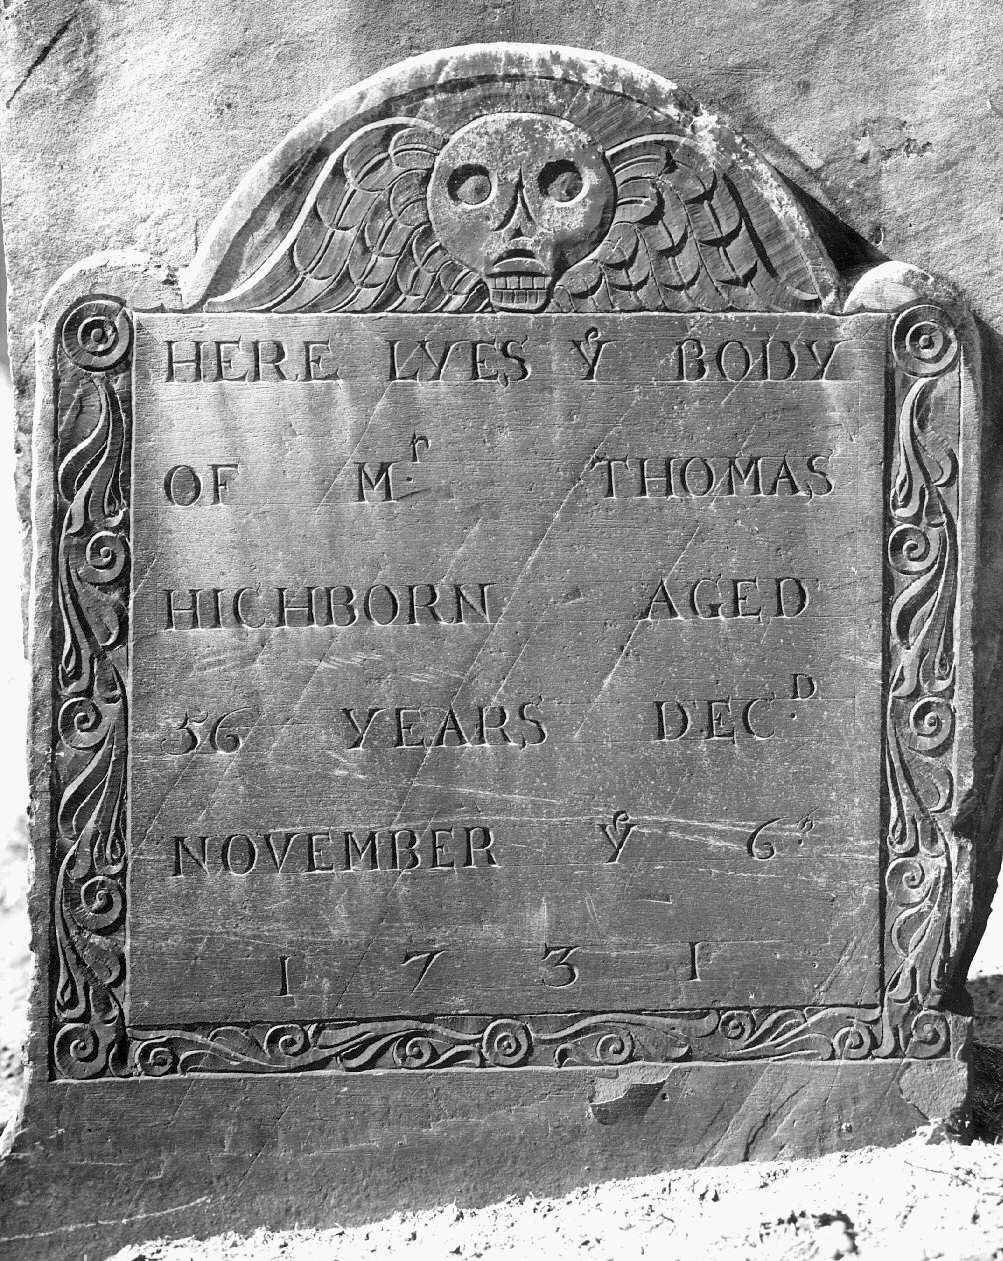 HERE LYES yͤ BODY
OF Mʳ THOMAS
HICHBORN AGED
56 YEARS DECᴰ
NOVEMBER yͤ 6
1731